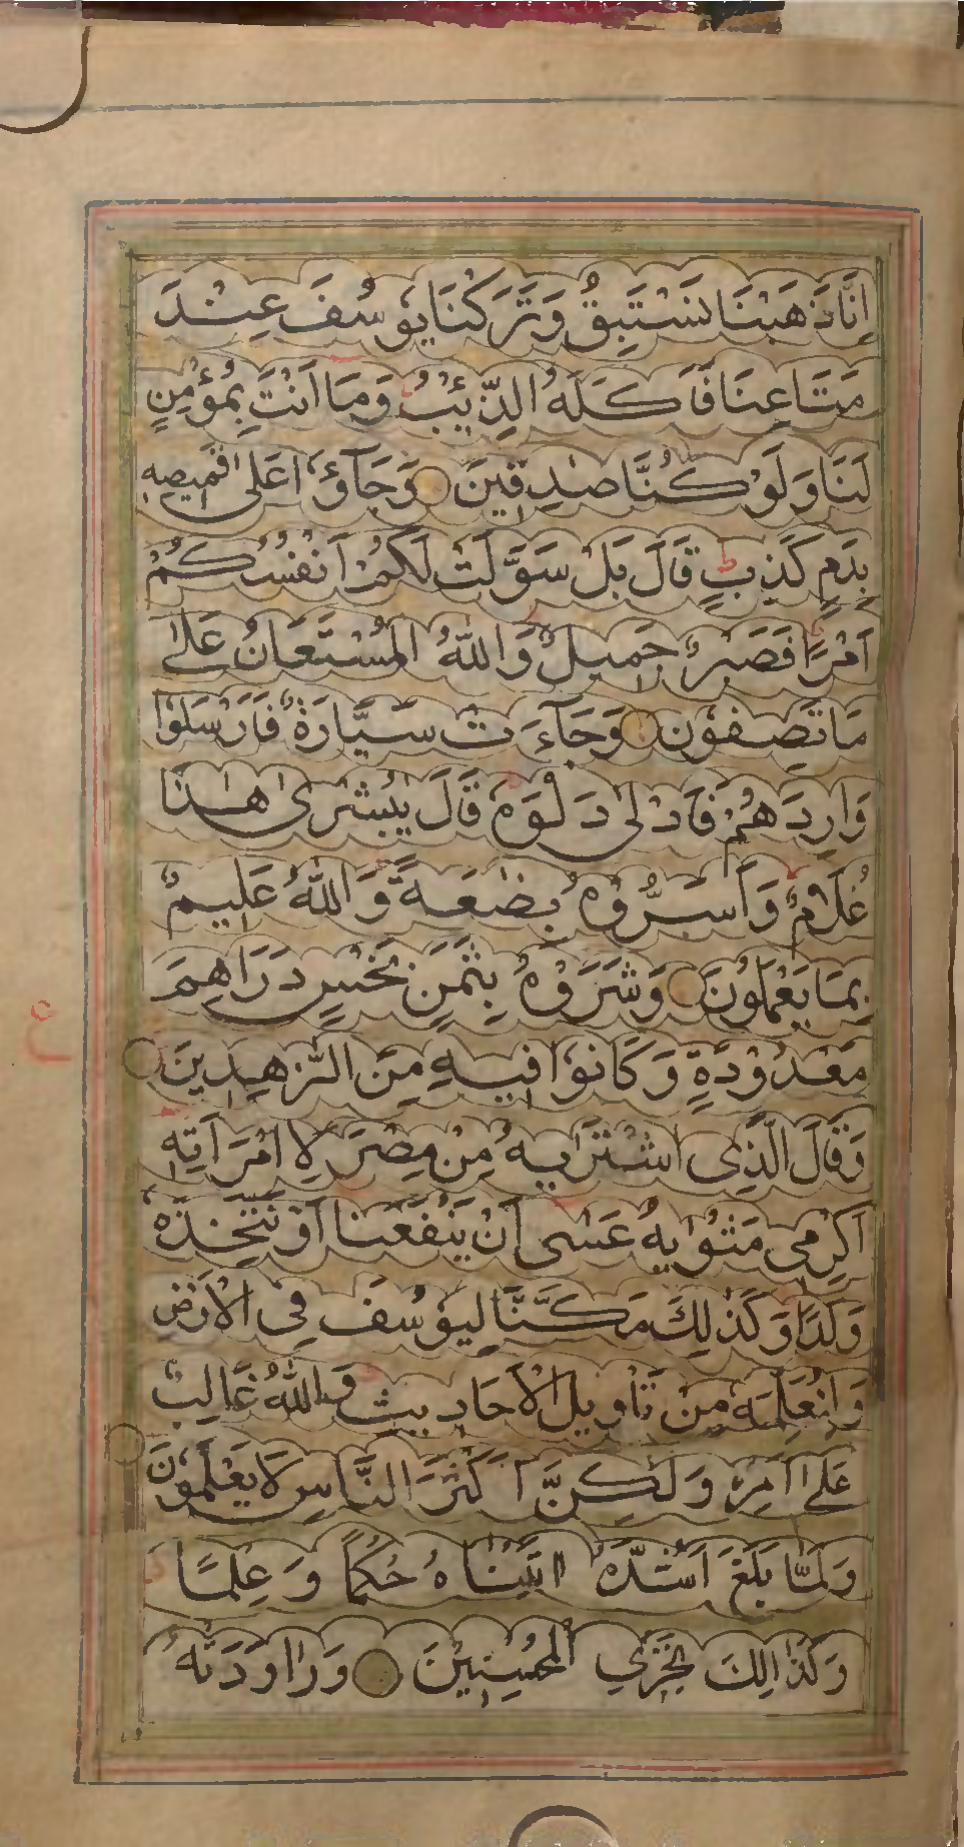 اِنَّا ذَهَبْنَا نَسْتَبِقُ وَتَرَكْنَا يُوْسُفَ عِنْدَ
مَتَاعِنَا فَاَكَلَهُ الذِّئْبُ وَمَا اَنْتَ بِمُؤْمِنٍ
لَنَا وَلَوْ كُنَّا صٰدِقِيْنَ وَجَآؤُا عَلٰى قَمِيْصِهٖ
بِدَمٍ كَذِبٍ ط قَالَ بَلْ سَوَّلَتْ لَكُمْ اَنْفُسُكُمْ
اَمْرًا فَصَبْرٌ جَمِيْلٌ وَاللّٰهُ الْمُسْتَعَانُ عَلٰى
مَا تَصِفُوْنَ وَجَآءَتْ سَيَّارَةٌ فَاَرْسَلُوْا
وَارِدَهُمْ فَاَدْلٰى دَلْوَهٗ قَالَ يٰبُشْرٰى هٰذَا
غُلَامٌ وَاَسَرُّوْهُ بِضٰعَةً وَاللّٰهُ عَلِيْمٌ
بِمَا يَعْمَلُوْنَ وَشَرَوْهُ بِثَمَنٍ بَخْسٍ دَرَاهِمَ
مَعْدُوْدَةٍ وَكَانُوْا فِيْهِ مِنَ الزّٰهِدِيْنَ
وَقَالَ الَّذِى اشْتَرٰيهُ مِنْ مِصْرَ لِامْرَاَتِهٖ
اَكْرِمِى مَثْوٰيهُ عَسٰى اَنْ يَنْفَعَنَا اَوْ نَتَّخِذَهٗ
وَلَدًا وَكَذٰلِكَ مَكَّنَّا لِيُوْسُفَ فِى الْاَرْضِ
وَلِنُعَلِّمَهٗ مِنْ تَاْوِيْلِ الْاَحَادِيْثِ وَاللّٰهُ غَالِبٌ
عَلٰى اَمْرِهٖ وَلٰكِنَّ اَكْثَرَ النَّاسِ لَا يَعْلَمُوْنَ
وَلَمَّا بَلَغَ اَشُدَّهٗ اٰتَيْنَاهُ حُكْمًا وَعِلْمًا
وَكَذَالِكَ نَجْزِي الْمُحْسِنِيْنَ وَرَاوَدَتْهُ